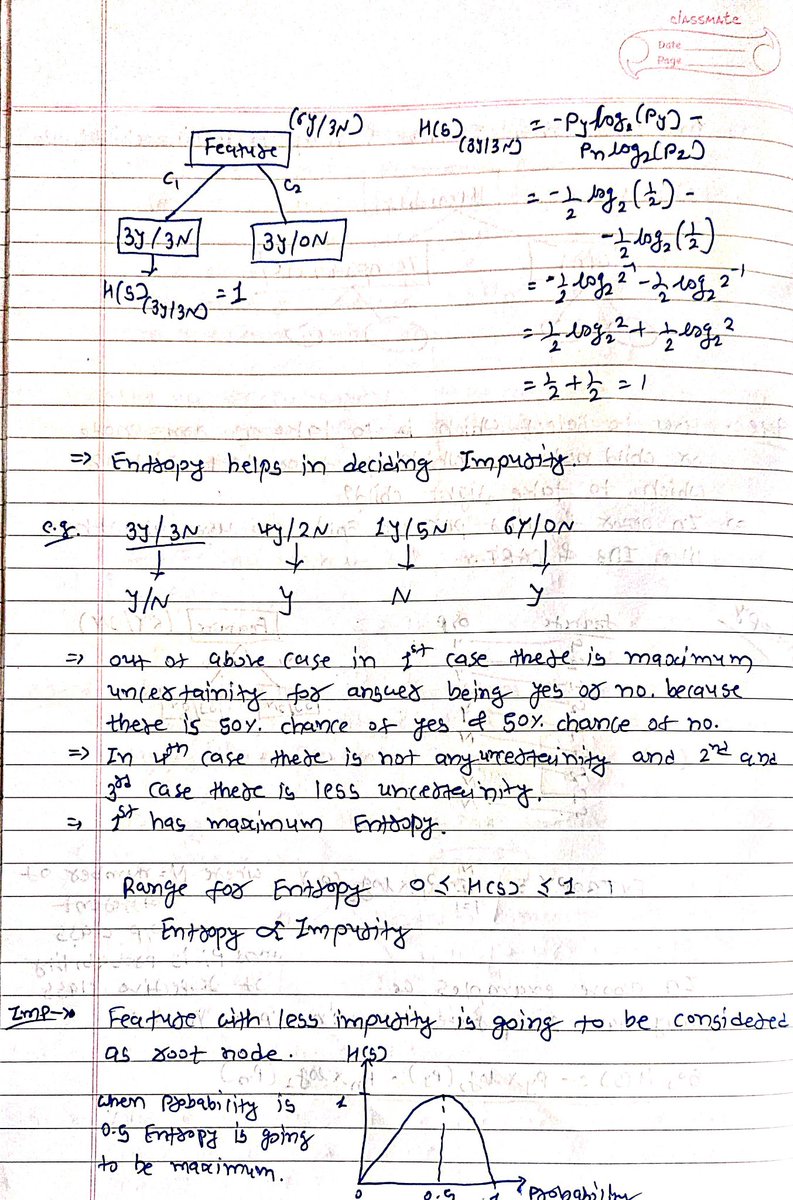 classmate
Date
Page
(6Y/3N)
Feature
C1 C2
3Y/3N 3Y/0N
H(S)(3Y/3N) = 1
H(S)(3Y/3N) = -Py log2(Py) -
Pn log2(P2)
= -1/2 log2(1/2) -
-1/2 log2(1/2)
= -1/2 log2 2^-1 - 1/2 log2 2^-1
= 1/2 log2 2 + 1/2 log2 2
= 1/2 + 1/2 = 1
=> Entropy helps in deciding Impurity.
e.g. 3Y/3N 4Y/2N 1Y/5N 6Y/0N
↓ ↓ ↓ ↓
Y/N Y N Y
=> out of above case in 1st case there is maximum
uncertainity for answer being yes or no. because
there is 50% chance of yes & 50% chance of no.
=> In 4th case there is not any uncertainity and 2nd and
3rd case there is less uncertainity.
=> 1st has maximum Entropy.
Range for Entropy 0 ≤ H(S) ≤ 1
Entropy ∝ Impurity
Imp→ Feature with less impurity is going to be considered
as root node.
H(S)
when Probability is
0.5 Entropy is going
to be maximum.
1
0 0.5 1 Probability